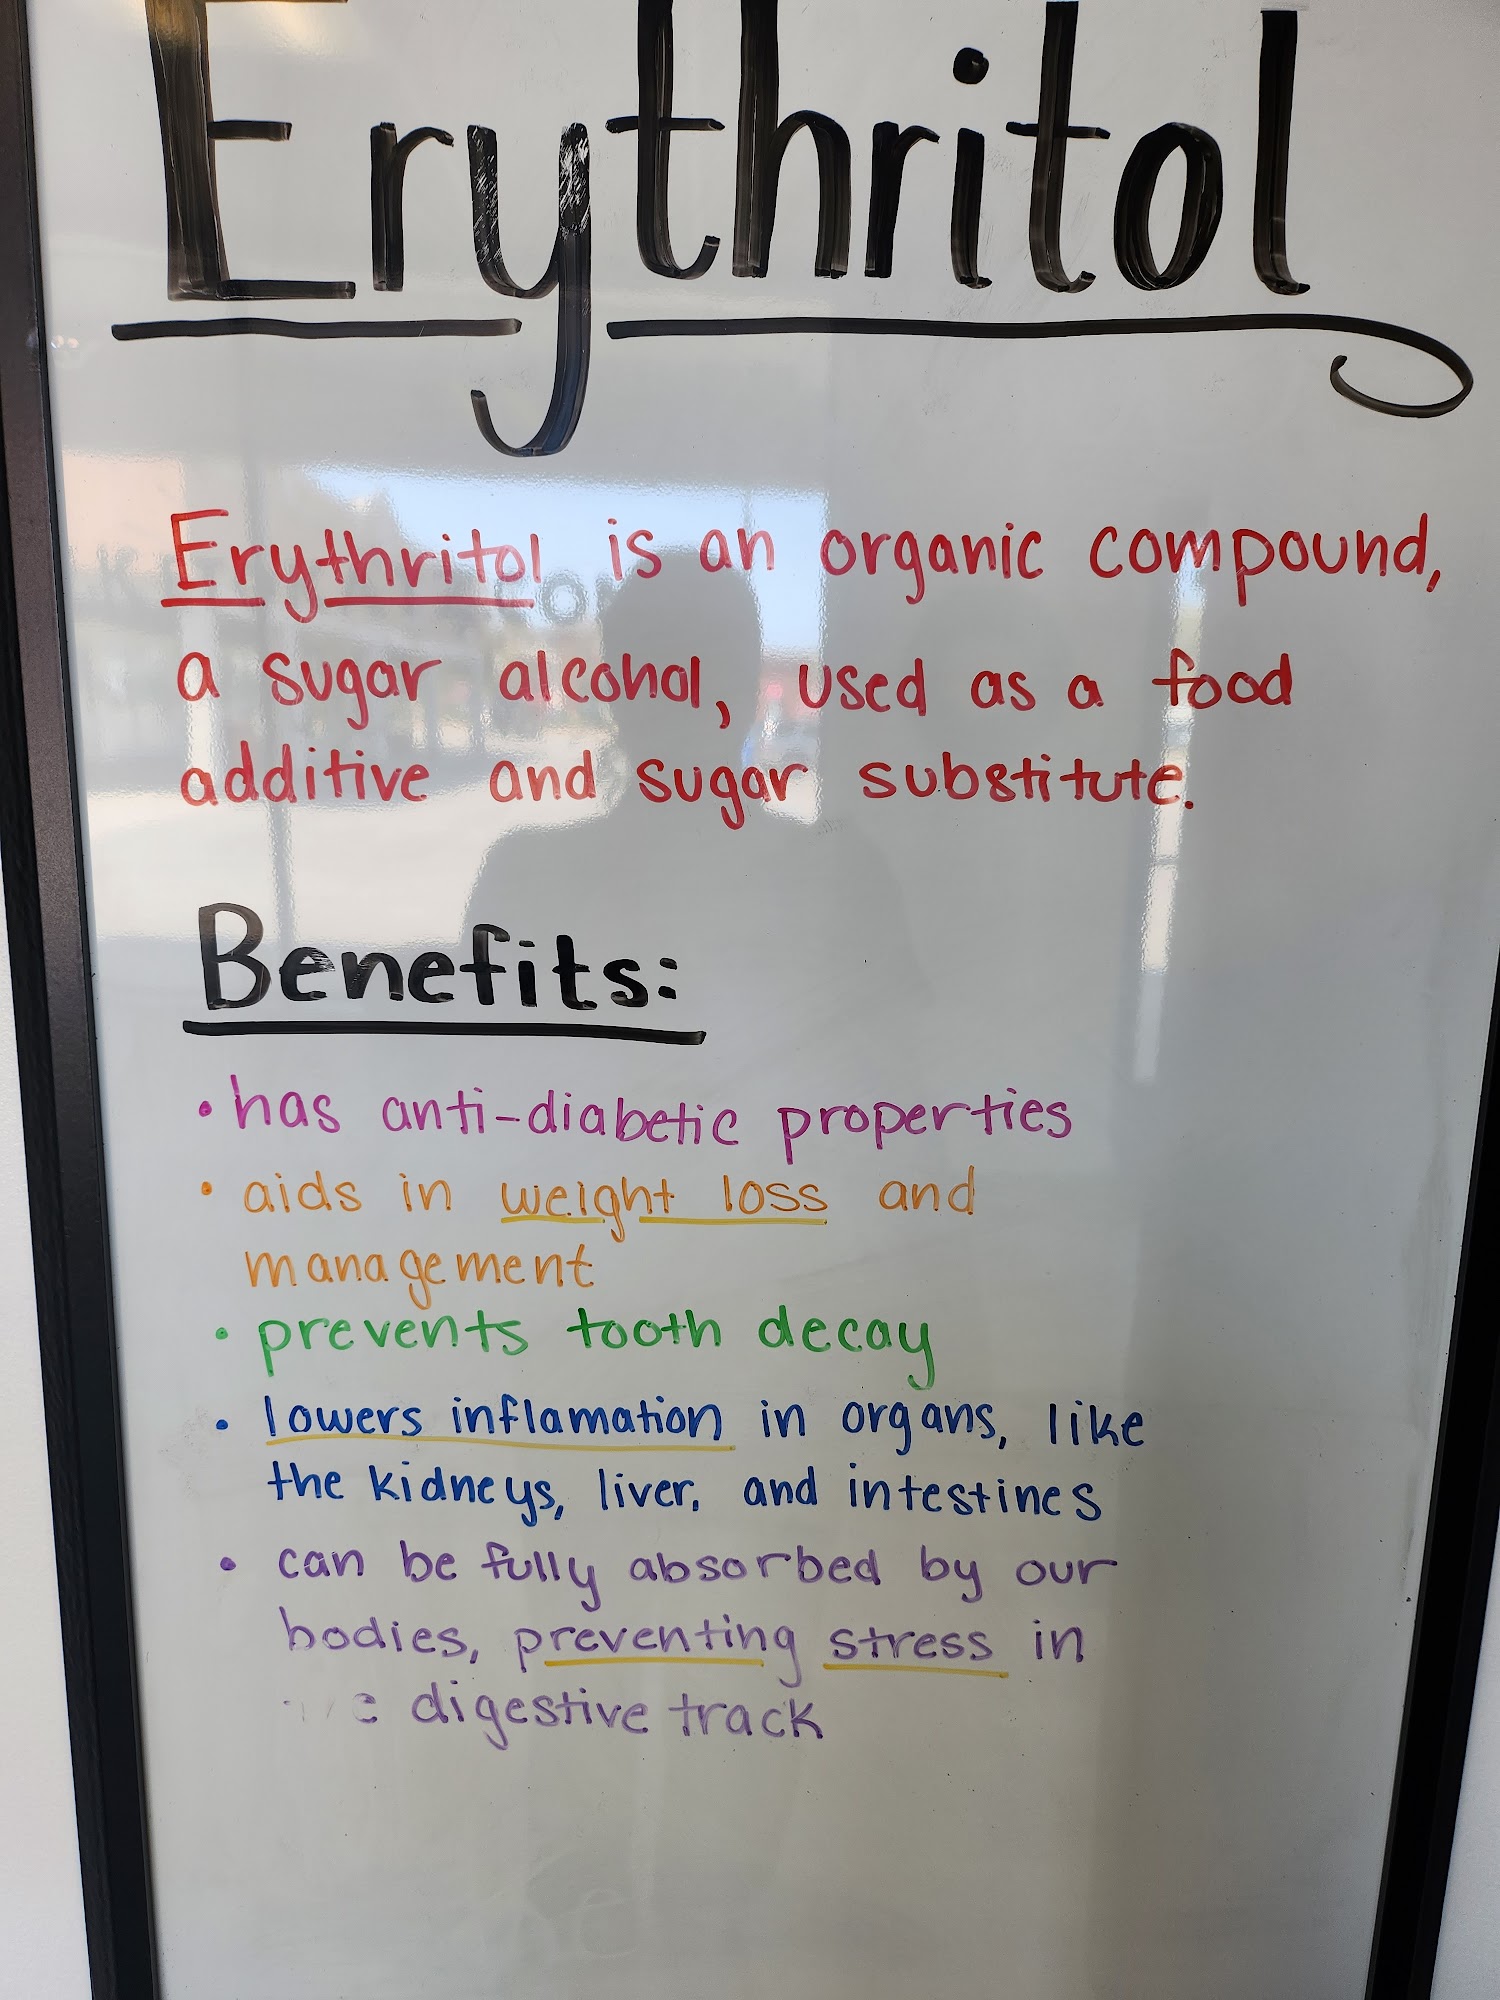 Erythritol
Erythritol is an organic compound,
a sugar alcohol, used as a food
additive and sugar substitute.
Benefits:
• has anti-diabetic properties
• aids in weight loss and
management
• prevents tooth decay
• lowers inflamation in organs, like
the kidneys, liver, and intestines
• can be fully absorbed by our
bodies, preventing stress in
digestive track